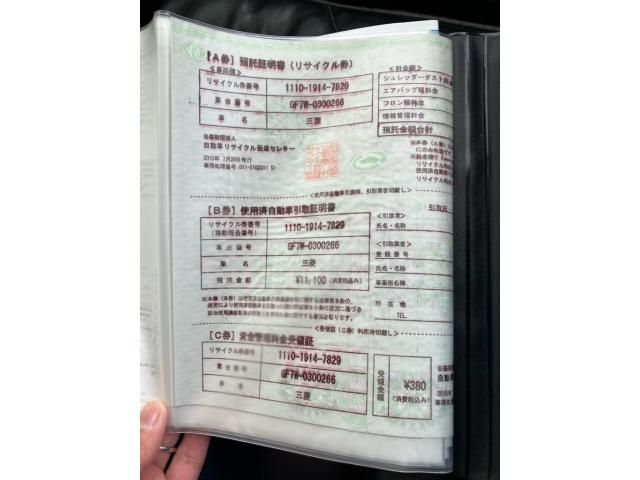 [A券] 預託証明書 (リサイクル券)
<車両欄>
リサイクル券番号 1110-1914-7829
車台番号 GF7W-0300266
車名 三菱
公益財団法人
自動車リサイクル促進センター
2015年 7月28日発行
<料金欄>
シュレッダーダスト料金
エアバッグ類料金
フロン類料金
情報管理料金
預託金額合計
<使用済自動車引渡時、引取業者切離し>
[B券] 使用済自動車引取証明書
リサイクル券番号
(移動報告番号) 1110-1914-7829
車台番号 GF7W-0300266
車名 三菱
預託金額 ¥11,100 (消費税込み)
引取日
<引渡者>
氏名・名称
<引取業者>
登録番号
氏名・名称
事業所名称
所在地
TEL
<受領証(C券)利用時切離し>
[C券] 資金管理料金受領証
リサイクル券番号 1110-1914-7829
車台番号 GF7W-0300266
車名 三菱
受領金額 ¥380
(消費税込み)
公益財
自動車
2015年